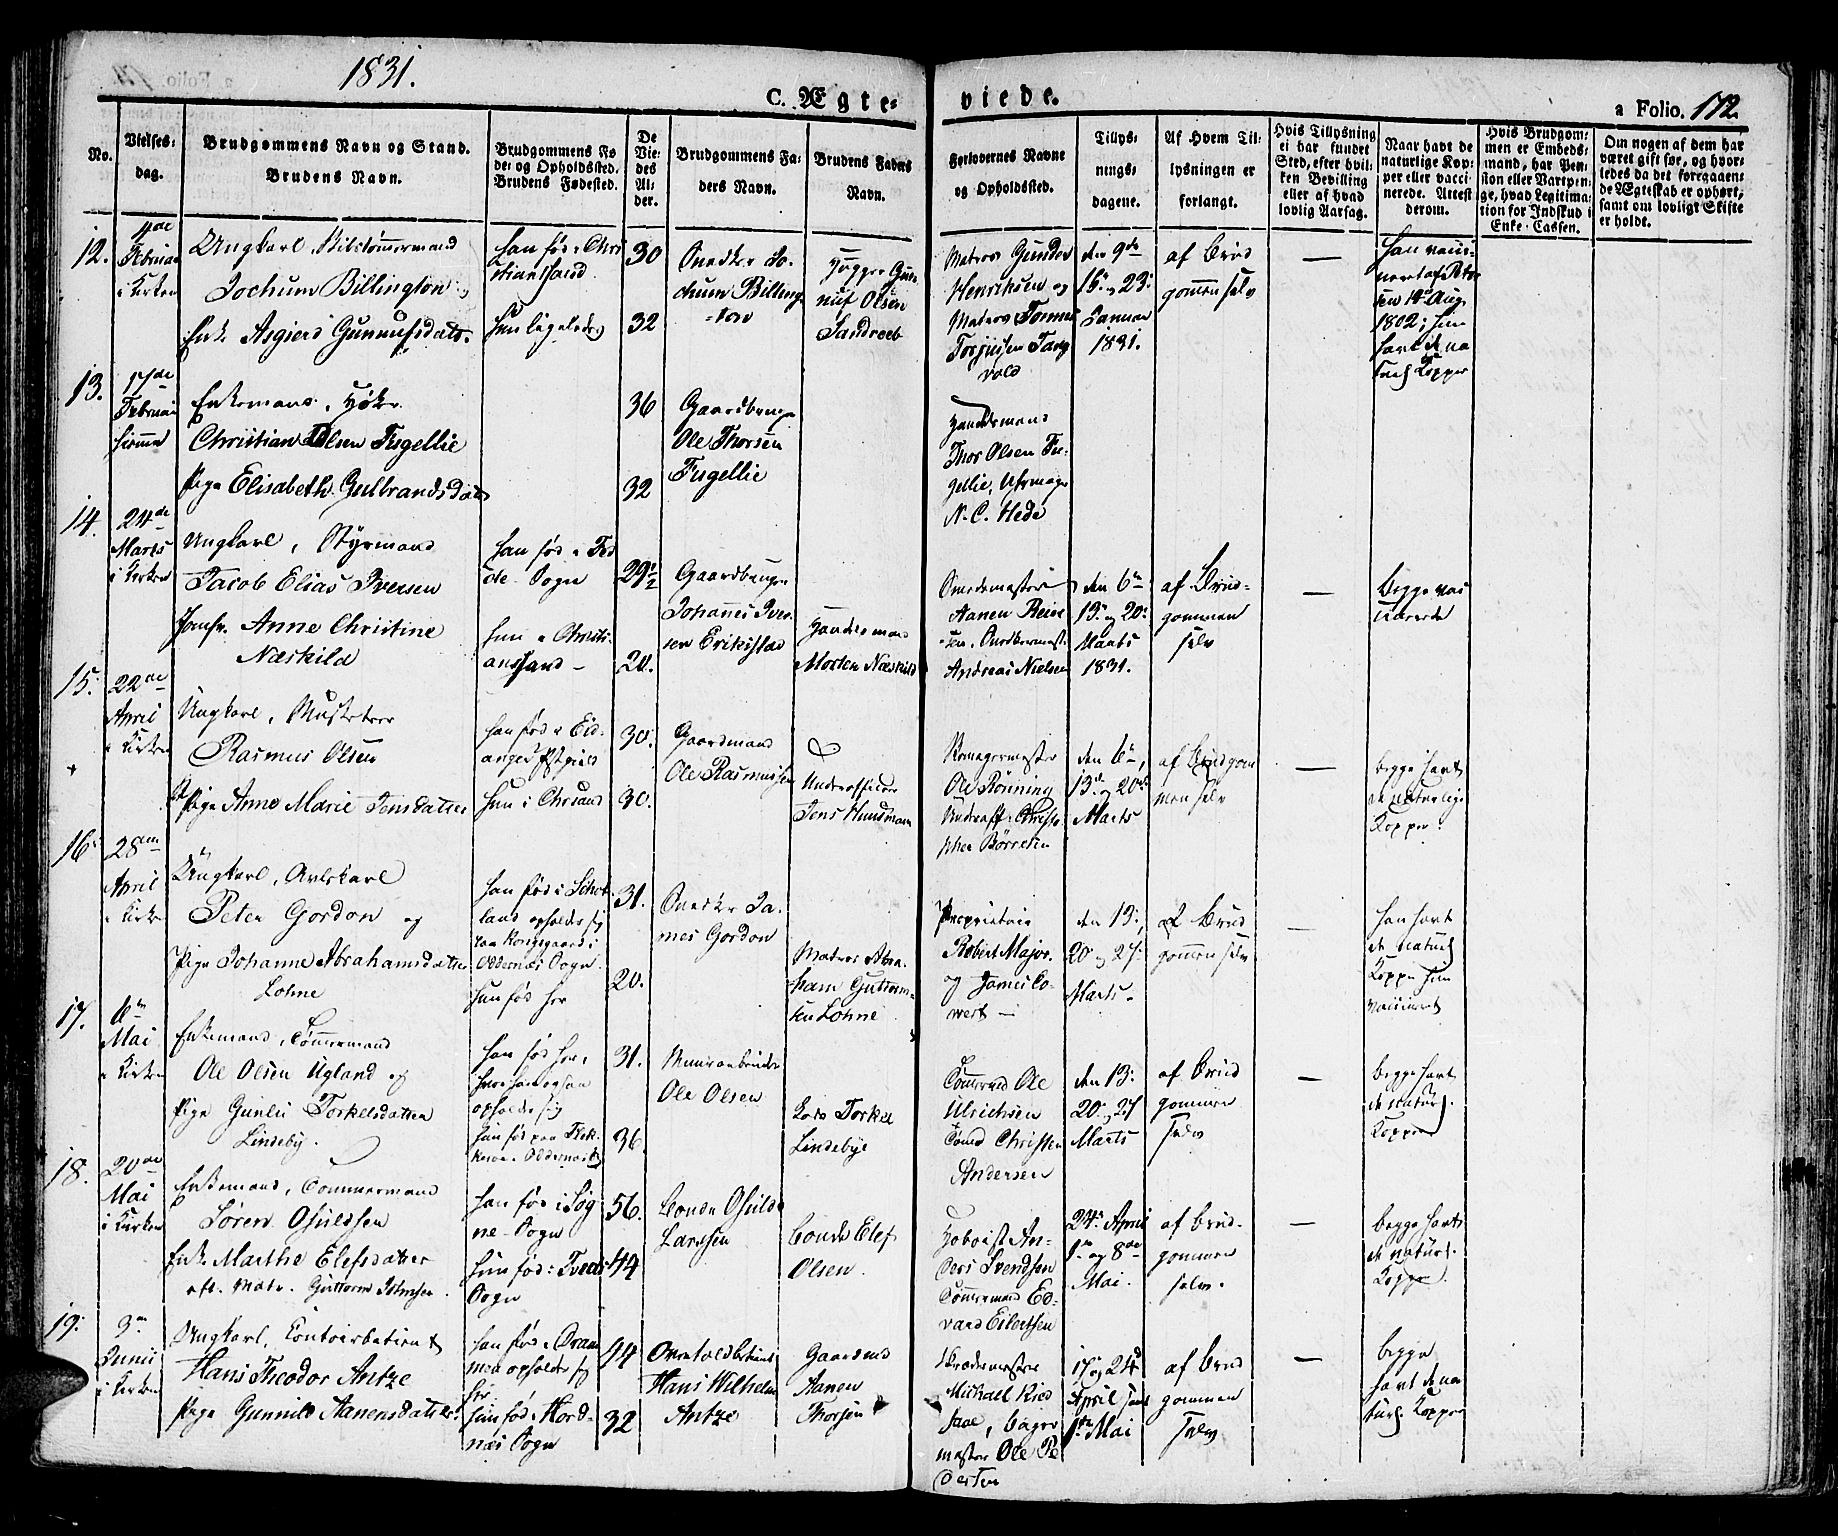 1831.
C. Ægte-
viede.
a Folio. 172.
No.
Vielses-
dag.
Brudgommens Navn og Stand.
Brudens Navn.
Brudgommens Fø-
de- og Opholdssted.
Brudens Fødested.
De
Vie-
des
Al-
der.
Brudgommens Fa-
ders Navn.
Brudens Faders
Navn.
Forlovernes Navne
og Opholdssted.
Tillys-
nings-
dagene.
Af Hvem Til-
lysningen er
forlangt.
Hvis Tillysning
ei har fundet
Sted, efter hvil-
ken Bevilling
eller af hvad
lovlig Aarsag.
Naar havt de
naturlige Kop-
per eller vacci-
nerede. Attest
derom.
Hvis Brudgom-
men er Embeds-
mand, har Pen-
sion eller Vartpen-
ge, hvad Legitima-
tion for Indskud i
Enke-Cassen.
Om nogen af dem har
været gift før, og hvor-
ledes da det foregaaen-
de Ægteskab er ophørt,
samt om lovligt Skifte
er holdt.
12.
Februar
i Kirken
Ungkarl,
Jochum Billington og
Enke Asgierd Gunnufsdatt.
han fød i Chri
stianssand.
hun ligeledes
30
32
Snedker Jo-
chum Billing
=ton
Gun-
nuf Olsen
Sandreeb
Matros Gunder
Henriksen og
Matros Tommes
Torjusen Tang
vald
den 9de
16de og 23de
Januar
1831.
af Brud
gommen selv
—
han vacci-
neret af
den 14de Aug.
1802; hun
havt de na
turl. Kopper
13.
17de
Februar
hiemme
Enkemand, Høker
Christian Olsen Fugellie
Pige Elisabeth Gulbrandsdatt
36
32
Gaardbruger
Ole Thorsen
Fugellie
Handelsmand
Thor Olsen Fu-
gellie, Uhrmager
N. C. Hede
14.
24de
Marts
i Kirken
Ungkarl, Styrmand
Jacob Elias Iversen
Jomfr. Anne Christine
Næskild
han fød i Fed
de Sogn
hun i Christi-
anssand –
29½
20.
Gaardbruger
Johannes Iver
sen Erikstad
Handelsmand
Morten Næskild
Smedemester
Aanen Reier
sen, Snedkermest.
Andreas Nielsen
den 6te
13de og 20de
Marts
1831.
af Brud-
gommen
selv
—
begge vac
cinerede
15.
22de
April
i Kirken
Ungkarl, Musketeer
Rasmus Olsen
Pige Anne Marie Jensdatter
han fød i Eid-
anger Pstgield
hun i Chrsand
30.
30.
Gaardmand
Ole Rasmussen
Underofficer
Jens Hundman
Ole Rønning
Underoff. Christo
pher Børresen
den 6te,
13de og 20de
Marts
af Brudgom
men selv
—
begge havt
de naturlige
Kopper.
16.
28de
April
i Kirken
Ungkarl, Avlskarl
Peter Gordon og
Pige Johanne Abrahamsdatter
Lohne
han fød i Skot
land opholder sig
paa Kongsgaard i
Oddernæs Sogn.
hun fød her
31.
20.
Snedker Ja-
mes Gordon
Matros Abra-
ham Guttorm-
sen Lohne
Proprietair
Robert Major
og James Co-
wert —
den 13de,
20 og 27de
Marts.
af Brud
gommen selv
—
han havt
de naturl.
Kopper hun
vaccineret
17.
6te
Mai
i Kirken
Enkemand, Tømmermand
Ole Olsen Ugland og
Pige Gunlei Torkelsdatter
Lindeby.
han fød her,
hvor han ogsaa
opholder sig
hun fød paa Flek-
kerø i Oddernæs S.
31.
36.
Muurarbeider
Ole Olsen
Lods Torkel
Lindebye
Tømermd Ole
Ulrichsen
Tømd Christen
Andersen
den 13de
20de og 27
Marts
af Brud
gommen
selv
—
begge havt
de naturl.
Kopper
18.
20de
Mai
i Kirken
Enkemand, Tømmermand
Søren Osuldsen
Enke Marthe Elefsdatter
eft. Matr. Guttorm Johnsen
han fød i Søg
ne Sogn
hun fød i Tveds
Sogn
56.
44
Bonde Osuld
Larsen
Bonde Elef
Olsen.
Hoboist An-
ders Svendsen
Tømermand Ed-
vard Eilertsen
24de April
1ste og 8de
Mai.
af Brud-
gommen
selv.
—
begge havt
de naturl.
Kopper.
19.
3de
Junii
i Kirken
Ungkarl, Contoirbetient
Hans Theodor Antze
Pige Gunnild Aanensdatter
han fød i Dram
men opholder sig
her
hun fød i Hord-
næs Sogn
44
32
Hans Wilhelm
Antze
Gaardmd
Aanen
Thorsen
Skrædermester
Michael Ried
, Bager
mester Ole Pe
dersen
17 og 24de
April samt
1ste Mai
af Brud
gommen
selv
—
begge
havt de na
turl. Kopper